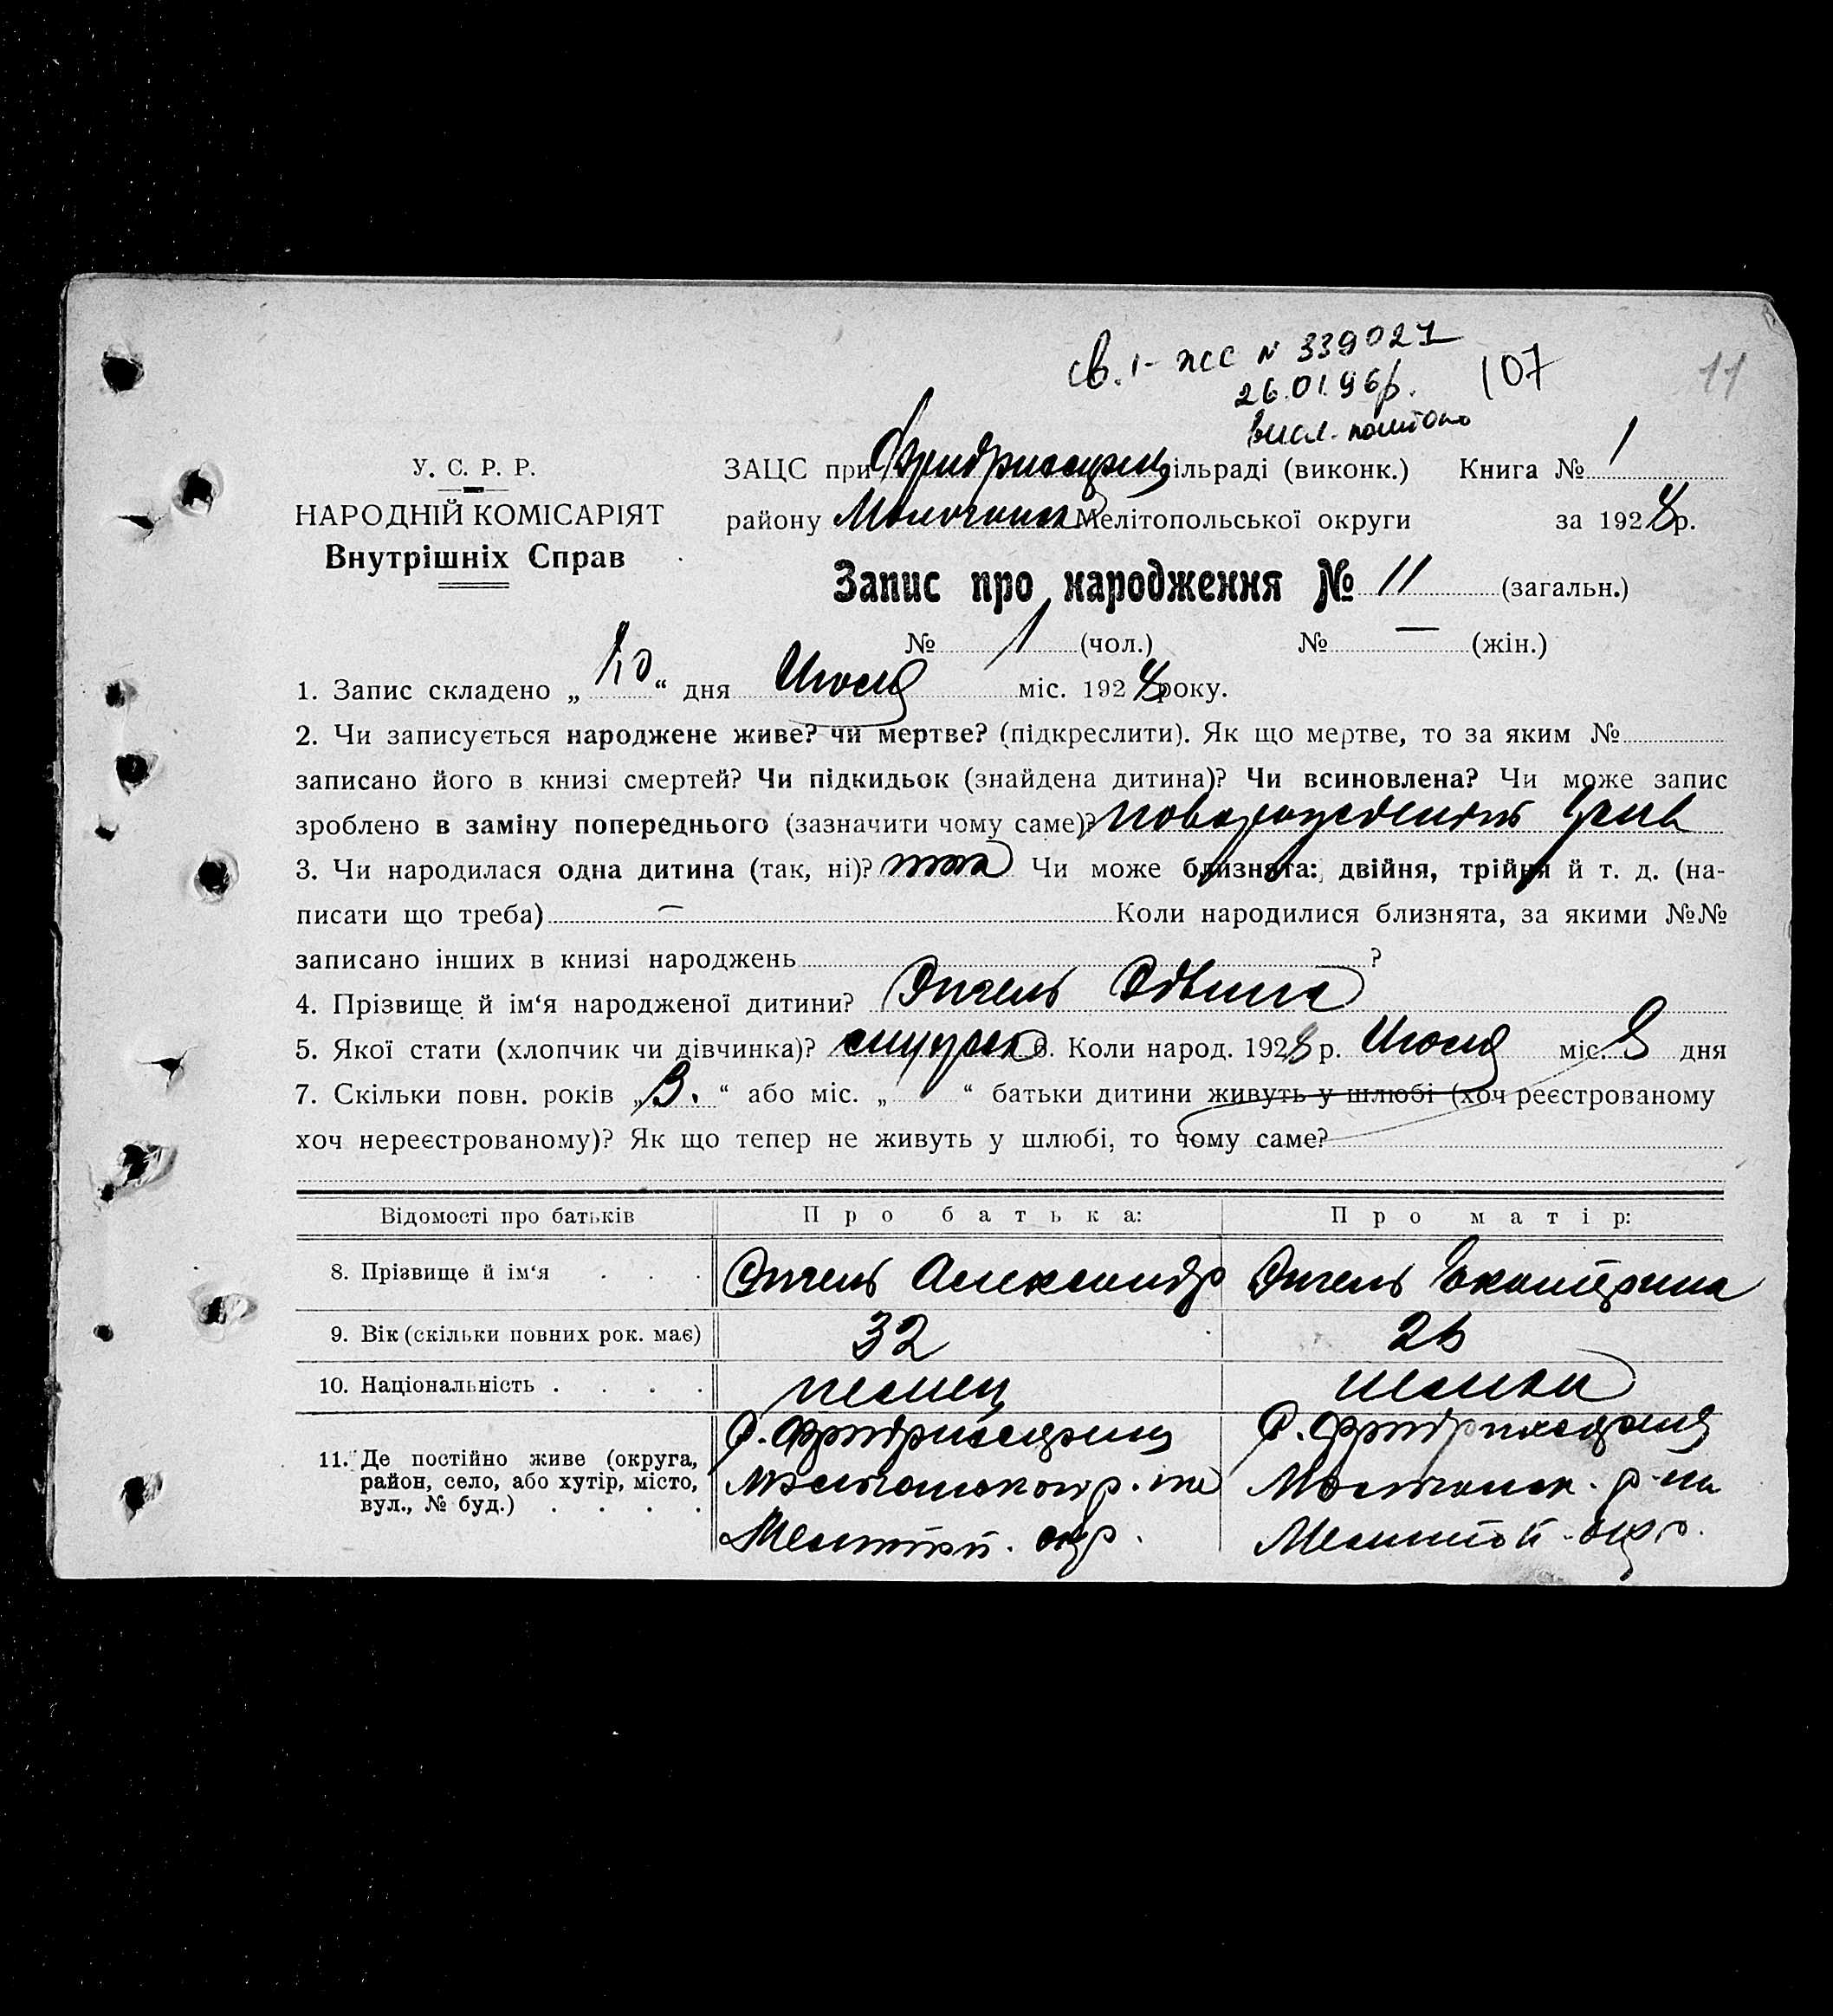 св. 1-ЖС № 339027
26.01.96р.
висл. поштою
107
11
У. С. Р. Р.
НАРОДНІЙ КОМІСАРІЯТ
Внутрішніх Справ
ЗАЦС при сільраді (виконк.) Книга № 1
району Молочанск Мелітопольської округи за 1928 р.
Запис про народження № 11 (загальн.)
№ 1 (чол.) № — (жін.)
1. Запис складено „ “ дня Июля міс. 1928 року.
2. Чи записується народжене живе? чи мертве? (підкреслити). Як що мертве, то за яким №
записано його в книзі смертей? Чи підкидьок (знайдена дитина)? Чи всиновлена? Чи може запис
зроблено в заміну попереднього (зазначити чому саме)?
3. Чи народилася одна дитина (так, ні)? так Чи може близнята: двійня, трійня й т. д. (на-
писати що треба) — Коли народилися близнята, за якими №№
записано інших в книзі народжень ?
4. Прізвище й ім‘я народженої дитини? Энгель
5. Якої стати (хлопчик чи дівчинка)? 6. Коли народ. 1928 р. Июля міс. 8 дня
7. Скільки повн. років „3.“ або міс. „ “ батьки дитини живуть у шлюбі (хоч реєстрованому
хоч нереєстрованому)? Як що тепер не живуть у шлюбі, то чому саме?
Відомості про батьків Про батька: Про матір:
8. Прізвище й ім‘я . . . Энгель Александр Энгель Екатерина
9. Вік (скільки повних рок. має) 32 26
10. Національність . . . . немец немка
11. Де постійно живе (округа,
район, село, або хутір, місто,
вул., № буд.) . . . .
Молочанск. р-на
Мелитоп. окр. Мелитоп. окр.